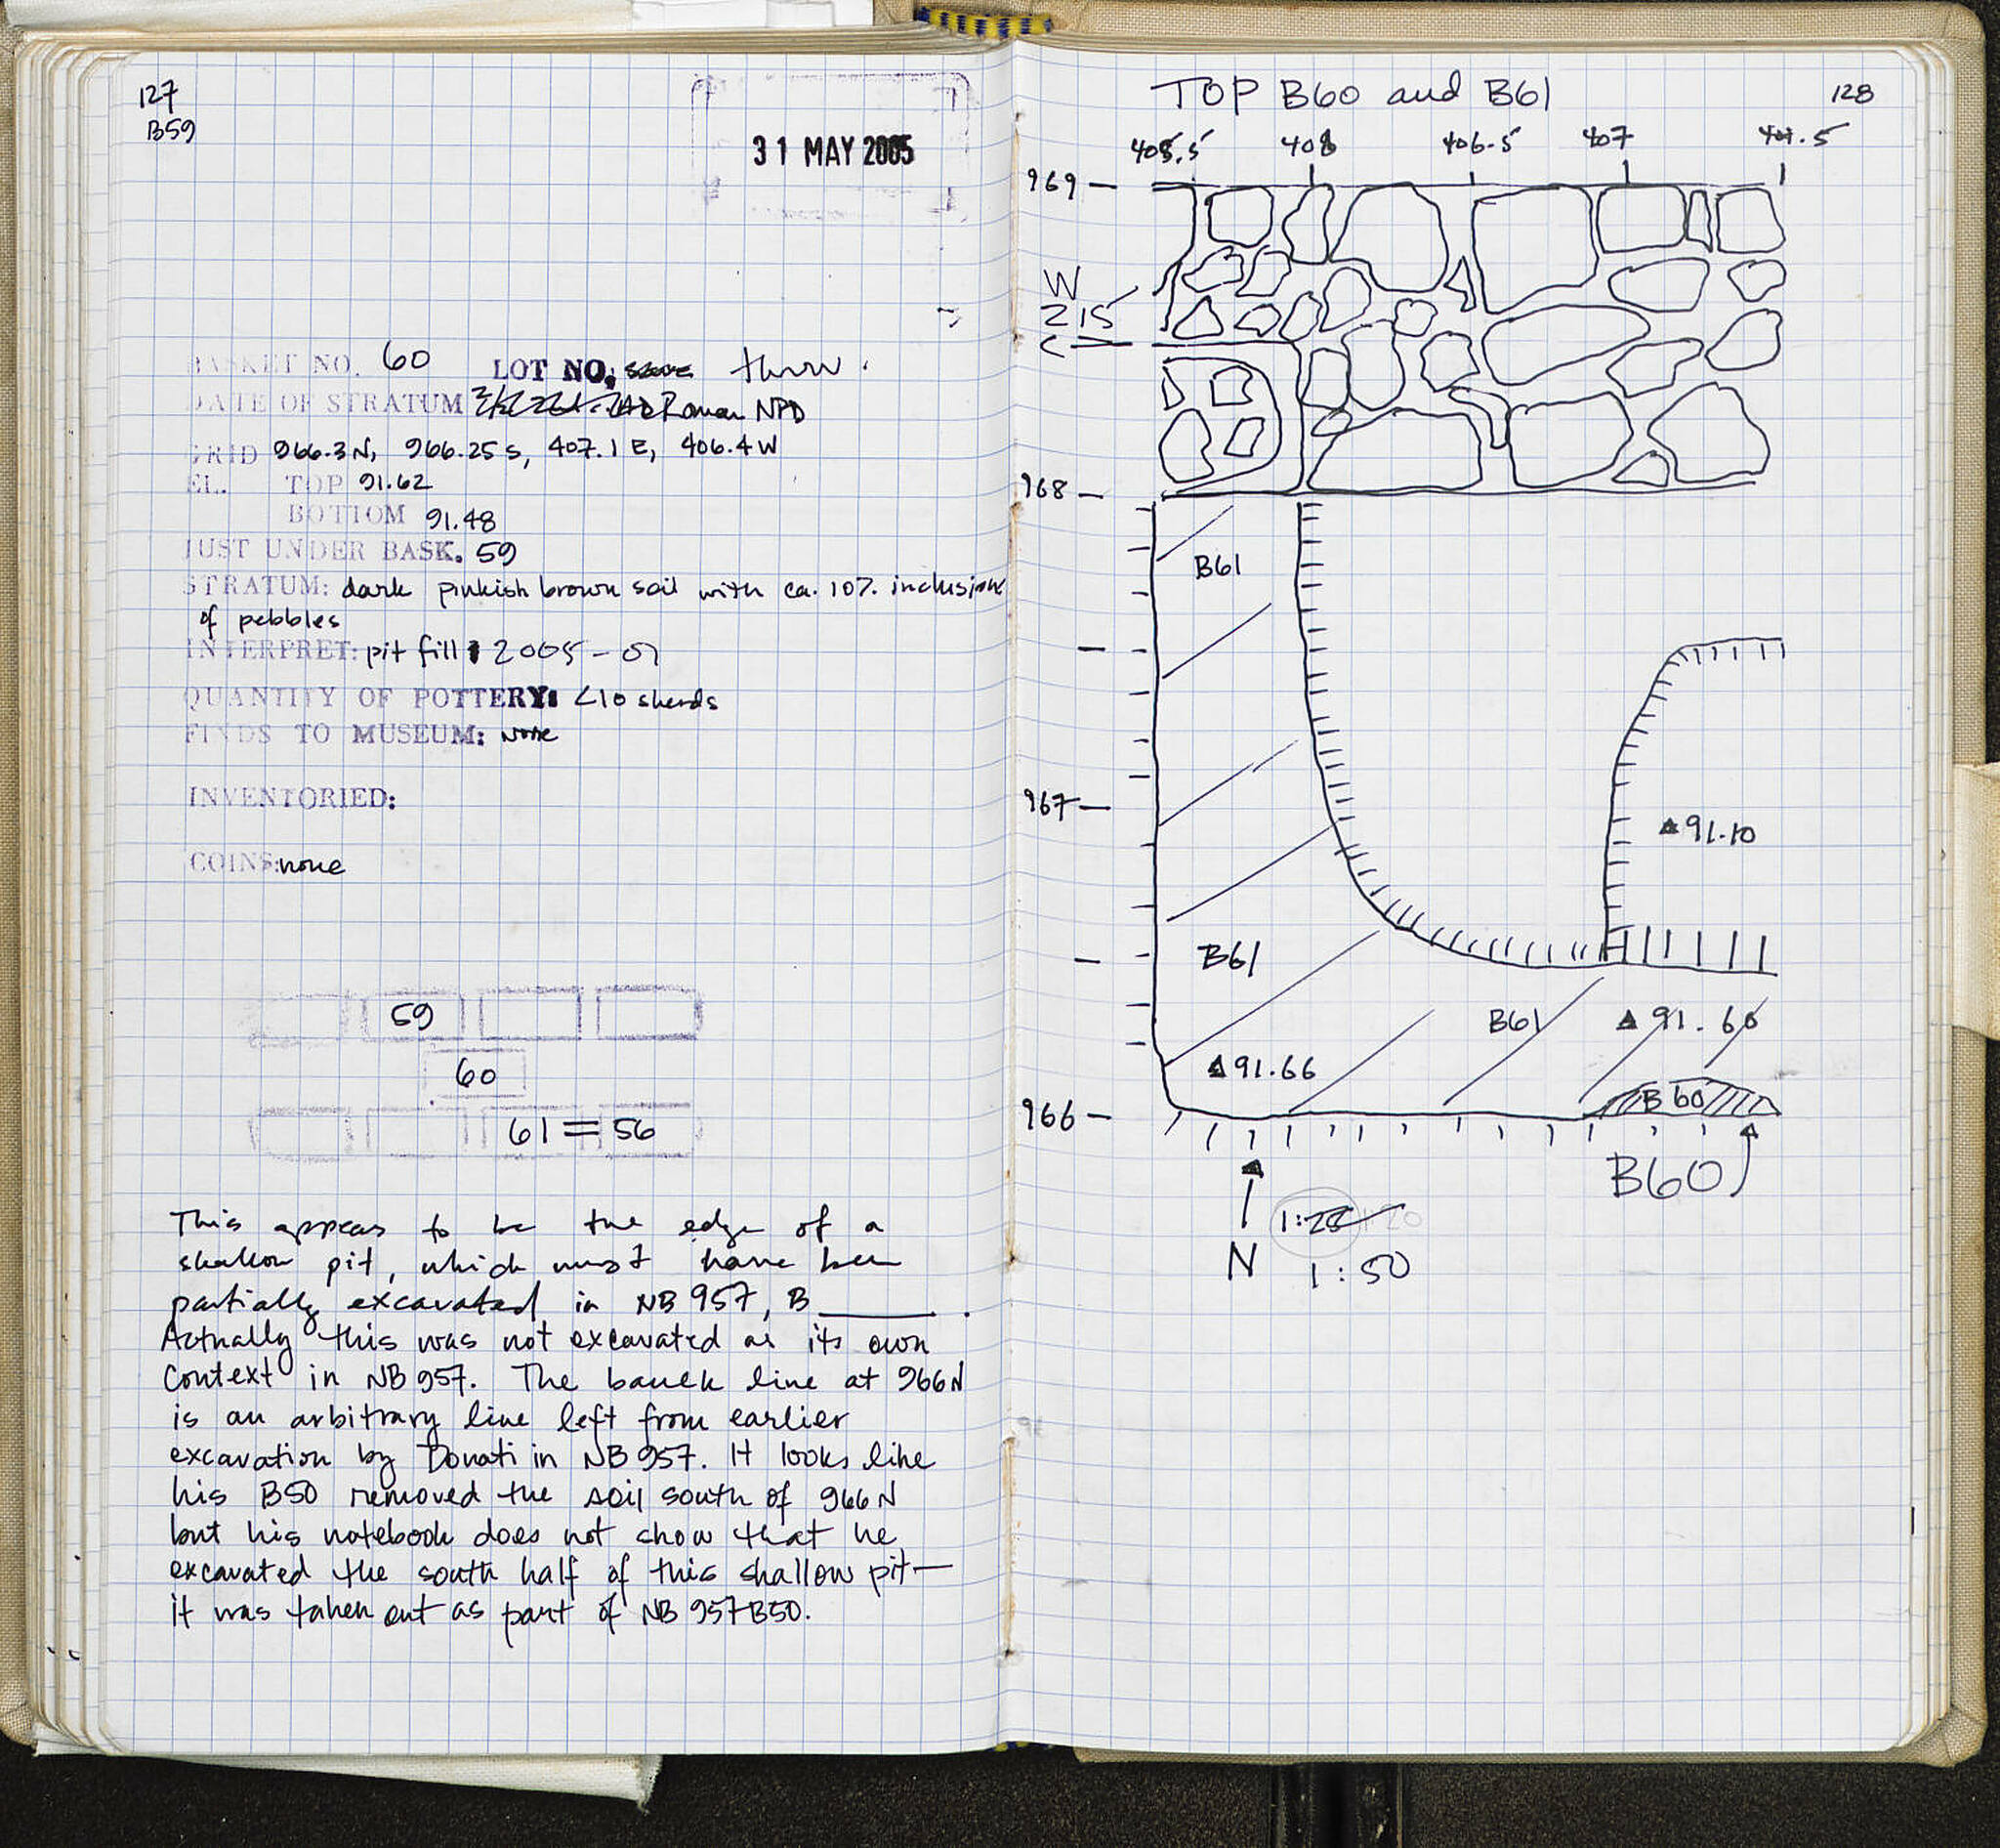 127
B59
31 MAY 2005
BASKET NO. 60 LOT NO. throw.
DATE OF STRATUM Roman NPD
GRID 966.3N, 966.25 S, 407.1 E, 406.4 W
EL. TOP 91.62
BOTTOM 91.48
JUST UNDER BASK. 59
STRATUM: dark pinkish brown soil with ca. 10% inclusions
of pebbles
INTERPRET: pit fill 2005-
QUANTITY OF POTTERY: <10 sherds
FINDS TO MUSEUM: none
INVENTORIED:
COINS: none
59
60
61 = 56
This appears to be the edge of a
shallow pit, which must have been
partially excavated in NB 957, B ______.
Actually this was not excavated as its own
context in NB 957. The baulk line at 966N
is an arbitrary line left from earlier
excavation by Donati in NB 957. It looks like
his B50 removed the soil south of 966N
but his notebook does not show that he
excavated the south half of this shallow pit—
it was taken out as part of NB 957 B50.
TOP B60 and B61
128
405.5 406.5 407
969
W
215
968
B61
967
91.10
B61
B61 91.60
91.66
B60
966
B60
N
1:50